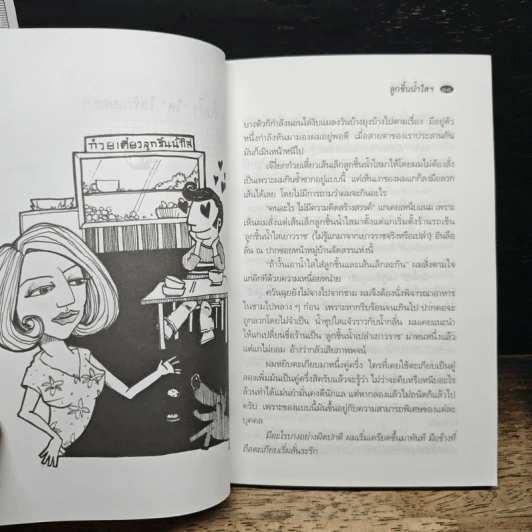 ก๋วยเตี๋ยวลูกชิ้นน้ำใส
ลูกชิ้นน้ำใสๆ
บางตัวก็กำลังนอนไล่งับแมลงวันบ้างยุงบ้างไปตามเรื่อง มีอยู่ตัว
หนึ่งกำลังหันมามองผมอยู่พอดี เมื่อสายตาของเราประสานกัน
มันก็เมินหน้าหนีไป
เจ๊ยี่ยกก๋วยเตี๋ยวเส้นเล็กลูกชิ้นน้ำใสมาให้โดยผมไม่ต้องสั่ง
เป็นเพราะผมกินซ้ำซากอยู่แบบนี้ แค่เห็นเงาของผมแกก็ลงมือลวก
เส้นได้เลย โดยไม่มีการถามว่าผมจะกินอะไร
“คนอะไร ไม่มีความคิดสร้างสรรค์” แกเคยเหน็บแนม เพราะ
เห็นผมสั่งแต่เส้นเล็กลูกชิ้นน้ำใสมาตั้งแต่แกเริ่มตั้งร้านรถเข็น
‘ลูกชิ้นน้ำใสเยาวราช’ (ไม่รู้แกมาจากเยาวราชจริงหรือเปล่า) อันลือ
ลั่น ณ ปากซอยหน้าหมู่บ้านจัดสรรแห่งนี้
“ถ้างั้นเอาน้ำใสใส่ลูกชิ้นและเส้นเล็กละกัน” ผมสั่งตามใจ
แกอีกทีด้วยความเหนื่อยหน่าย
ควันฉุยยังไม่จางไปจากชาม ผมจึงต้องนั่งพิจารณาอาหาร
ในชามไปพลาง ๆ ก่อน เพราะหากรีบร้อนจนเกินไป ปากคอจะ
ถูกลวกโดยไม่จำเป็น น้ำซุปใสแจ๋วราวกับน้ำกลั่น ผมเคยแนะนำ
ให้แกเปลี่ยนชื่อร้านเป็น ‘ลูกชิ้นน้ำเปล่าเยาวราช’ มาหนหนึ่งแล้ว
แต่แกไม่ยอม อ้างว่ากลัวเสียภาพพจน์
ผมหยิบตะเกียบมาหนึ่งคู่ครึ่ง ใครที่เคยใช้ตะเกียบเป็นคู่
ลองเพิ่มมันเป็นคู่ครึ่งสิครับแล้วจะรู้ว่า ไม่ว่าจะคีบหรือหนีบอะไร
ล้วนทำได้แม่นยำมั่นคงดีนักแล แต่หากลองแล้วไม่ถนัดก็แล้วไป
ครับ เพราะของแบบนี้มันขึ้นอยู่กับความสามารถพิเศษของแต่ละ
บุคคล
มีอะไรบางอย่างผิดปกติ ผมเริ่มเครียดขึ้นมาทันที มือข้างที่
ถือตะเกียบเริ่มสั่นระริก